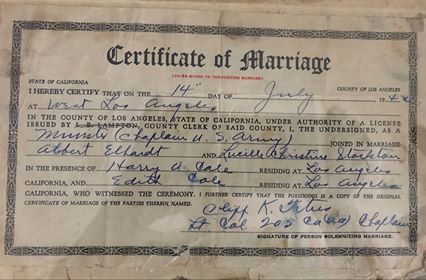 Certificate of Marriage
(TO BE GIVEN TO THE PARTIES MARRIED)
STATE OF CALIFORNIA COUNTY OF LOS ANGELES
I HEREBY CERTIFY THAT ON THE 14" DAY OF July 194
AT West Los Angeles
IN THE COUNTY OF LOS ANGELES, STATE OF CALIFORNIA, UNDER AUTHORITY OF A LICENSE
ISSUED BY L. E. LAMPTON, COUNTY CLERK OF SAID COUNTY, I, THE UNDERSIGNED, AS A
Minister (Chaplain U. S. Army) JOINED IN MARRIAGE
Albert Elhardt AND Lucille Christine Stockton
IN THE PRESENCE OF Harry A. Cole RESIDING AT Los Angeles
CALIFORNIA, AND Edith Cole RESIDING AT Los Angeles
CALIFORNIA, WHO WITNESSED THE CEREMONY. I FURTHER CERTIFY THAT THE FOREGOING IS A COPY OF THE ORIGINAL
CERTIFICATE OF MARRIAGE OF THE PARTIES THEREIN NAMED.
K.
Lt Col 205 Ca(aa) Chaplain
SIGNATURE OF PERSON SOLEMNIZING MARRIAGE.